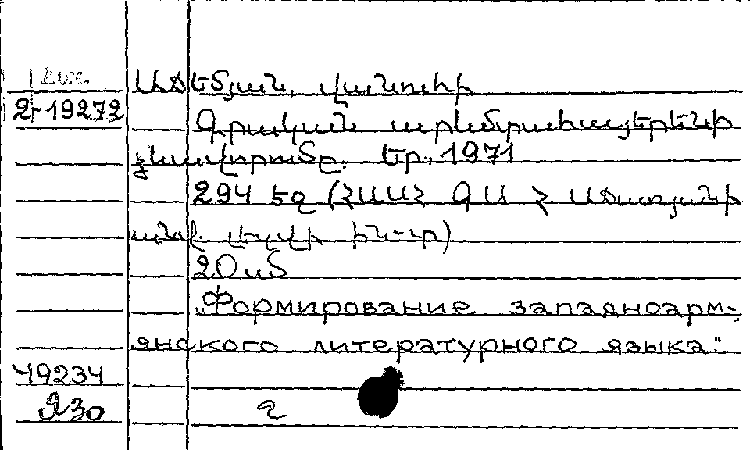 2-19272 Աճեմյան, Վանուհի
Գրական արևմտահայերենի
ձևավորումը. Եր., 1971
294 էջ (ՀՍՍՀ ԳԱ Հ. Աճառյանի
անվ. լեզվի ին-տ)
20 սմ
„Формирование западноарм-
янского литературного языка".
49234